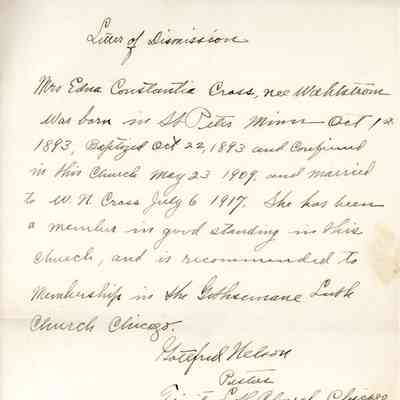 Letter of Dismission
Mrs Edna Constantia Cross, nee Wahlstrom
was born in St Peter Minn Oct 1st
1893, Baptized Oct 22, 1893 and Confirmed
in this Church May 23 1909, and married
to W. N. Cross July 6 1917. She has been
a member in good standing in this
church, and is recommended to
Membership in the Gethsemane Luth
Church Chicago.
Gottfred Nelson
Pastor
Church Chicago